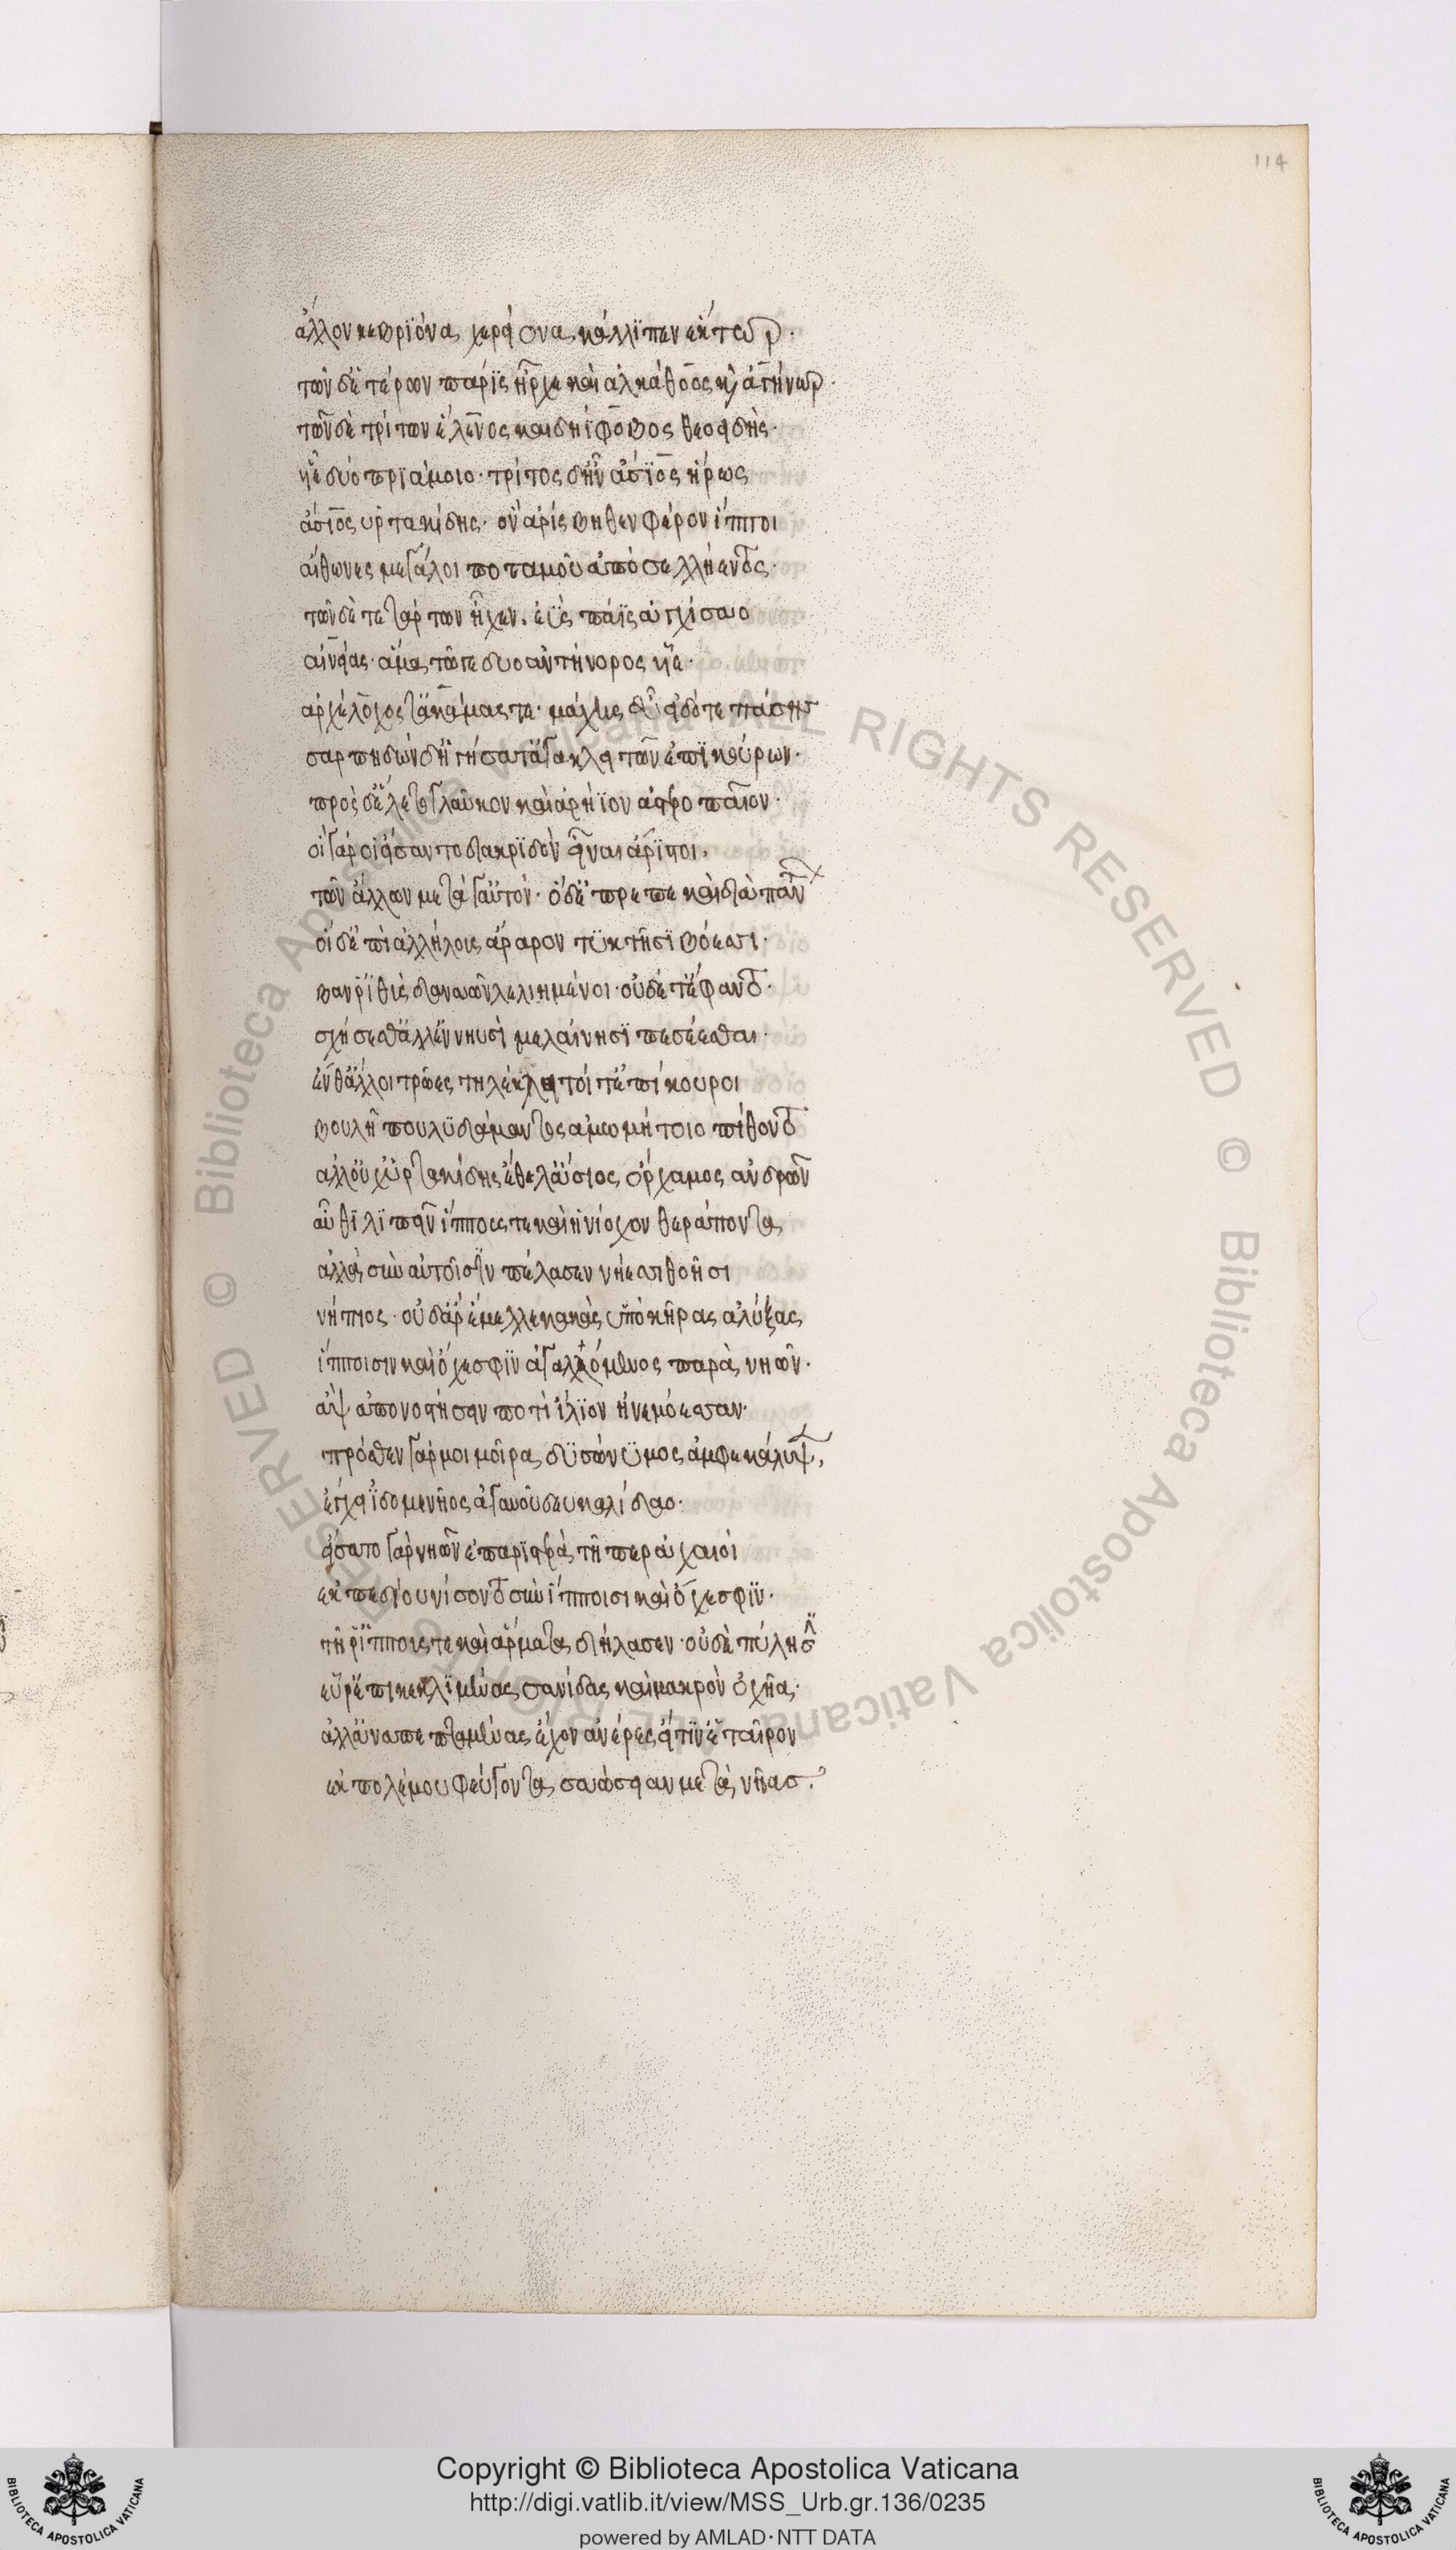 114
ἄλλον κεβριόναο χερείονα κάλλιπεν ἕκτωρ.
τῶν δ' ἑτέρων πάρις ἦρχε καὶ ἀλκάθοος κ(αὶ) ἀγήνωρ.
τῶν δὲ τρίτων ἕλενος καὶ δηΐφοβος θεοειδής.
υἷε δύο πριάμοιο· τρίτος δ' ἦν ἄσϊος ἥρως
ἄσϊος ὑρτακίδης· ὃν ἀρίσβηθεν φέρον ἵπποι
αἴθωνες μεγάλοι ποταμοῦ ἀπὸ σελλήεντος.
τῶν δὲ τετάρτων ἦρχεν ἐῢς πάϊς ἀγχίσαο
αἰνείας· ἅμα τῶγε δύο ἀντήνορος υἷε.
ἀρχέλοχός τ' ἀκάμας τε· μάχης εὖ εἰδότε πάσης
σαρπηδὼν δ' ἡγήσατ' ἀγακλειτῶν ἐπικούρων.
πρὸς δ' ἕλετο γλαῦκον καὶ ἀρήϊον ἀστεροπαῖον.
οἱ γάρ οἱ εἴσαντο διακριδὸν εἶναι ἄριστοι.
τῶν ἄλλων μετά γ' αὐτόν· ὁ δ' ἔπρεπε καὶ διὰ πάντων
οἱ δ' ἐπὶ ἀλλήλοις ἄραρον τυκτῇσι βόεσσι.
βάν ῥ' ἰθὺς δαναῶν λελιημένοι· οὐδέ τ' ἔφαντο.
σχήσεσθ' ἀλλ' ἐν νηυσὶ μελαίνησϊ πεσέεσθαι.
ἔνθ' ἄλλοι τρῶες τηλεκλειτοί τ' ἐπίκουροι
βουλῇ πουλυδάμαντος ἀμωμήτοιο πίθοντο
ἀλλ' οὐχ ὑρτακίδης ἔθελ' ἄσιος ὄρχαμος ἀνδρῶν
αὖθϊ λιπεῖν ἵππους τε καὶ ἡνίοχον θεράποντα
ἀλλὰ σὺν αὐτοῖσιν πέλασεν νήεσσι θοῇσι
νήπιος· οὐδ' ἄρ' ἔμελλε κακὰς ὑπὸ κῆρας ἀλύξας
ἵπποισιν καὶ ὄχεσφϊν ἀγαλλόμενος παρὰ νηῶν.
ἂψ ἀπονοστήσειν ποτὶ ἴλϊον ἠνεμόεσσαν.
πρόσθεν γάρ μοι μοῖρα δυσώνυμος ἀμφεκάλυψεν
ἔγχεϊ ἰδομενῆος ἀγαυοῦ δευκαλίδαο.
εἴσατο γὰρ νηῶν ἐπ' ἀριστερὰ τῇ περ ἀχαιοὶ
ἐκ πεδίου νίσοντο σὺν ἵπποισι καὶ ὄχεσφϊν.
τῇ ῥ' ἵππους τε καὶ ἅρματα διήλασεν· οὐδὲ πύλησιν
εὗρ' ἐπικεκλιμένας σανίδας καὶ μακρὸν ὀχῆα.
ἀλλ' ἀναπεπταμένας ἔχον ἀνέρες εἴ τϊν' ἑταῖρον
ἐκ πολέμου φεύγοντα σαώσειαν μετὰ νῆας.
Copyright © Biblioteca Apostolica Vaticana
http://digi.vatlib.it/view/MSS_Urb.gr.136/0235
powered by AMLAD·NTT DATA